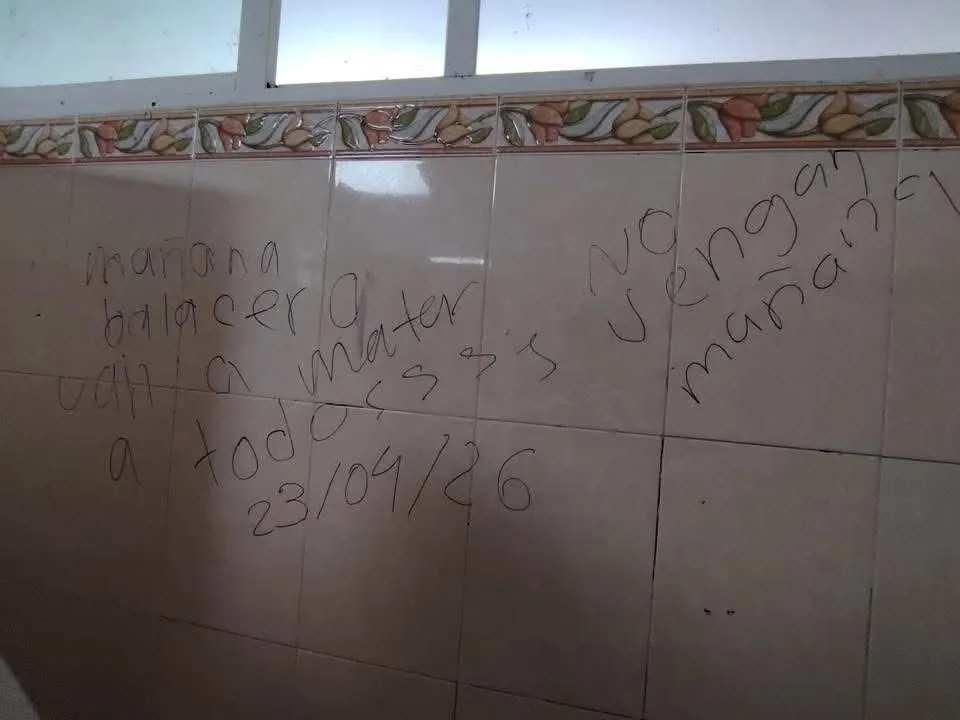 mañana
balacera
van a mater
a todocssss
23/04/26
NO
vengan
mañana